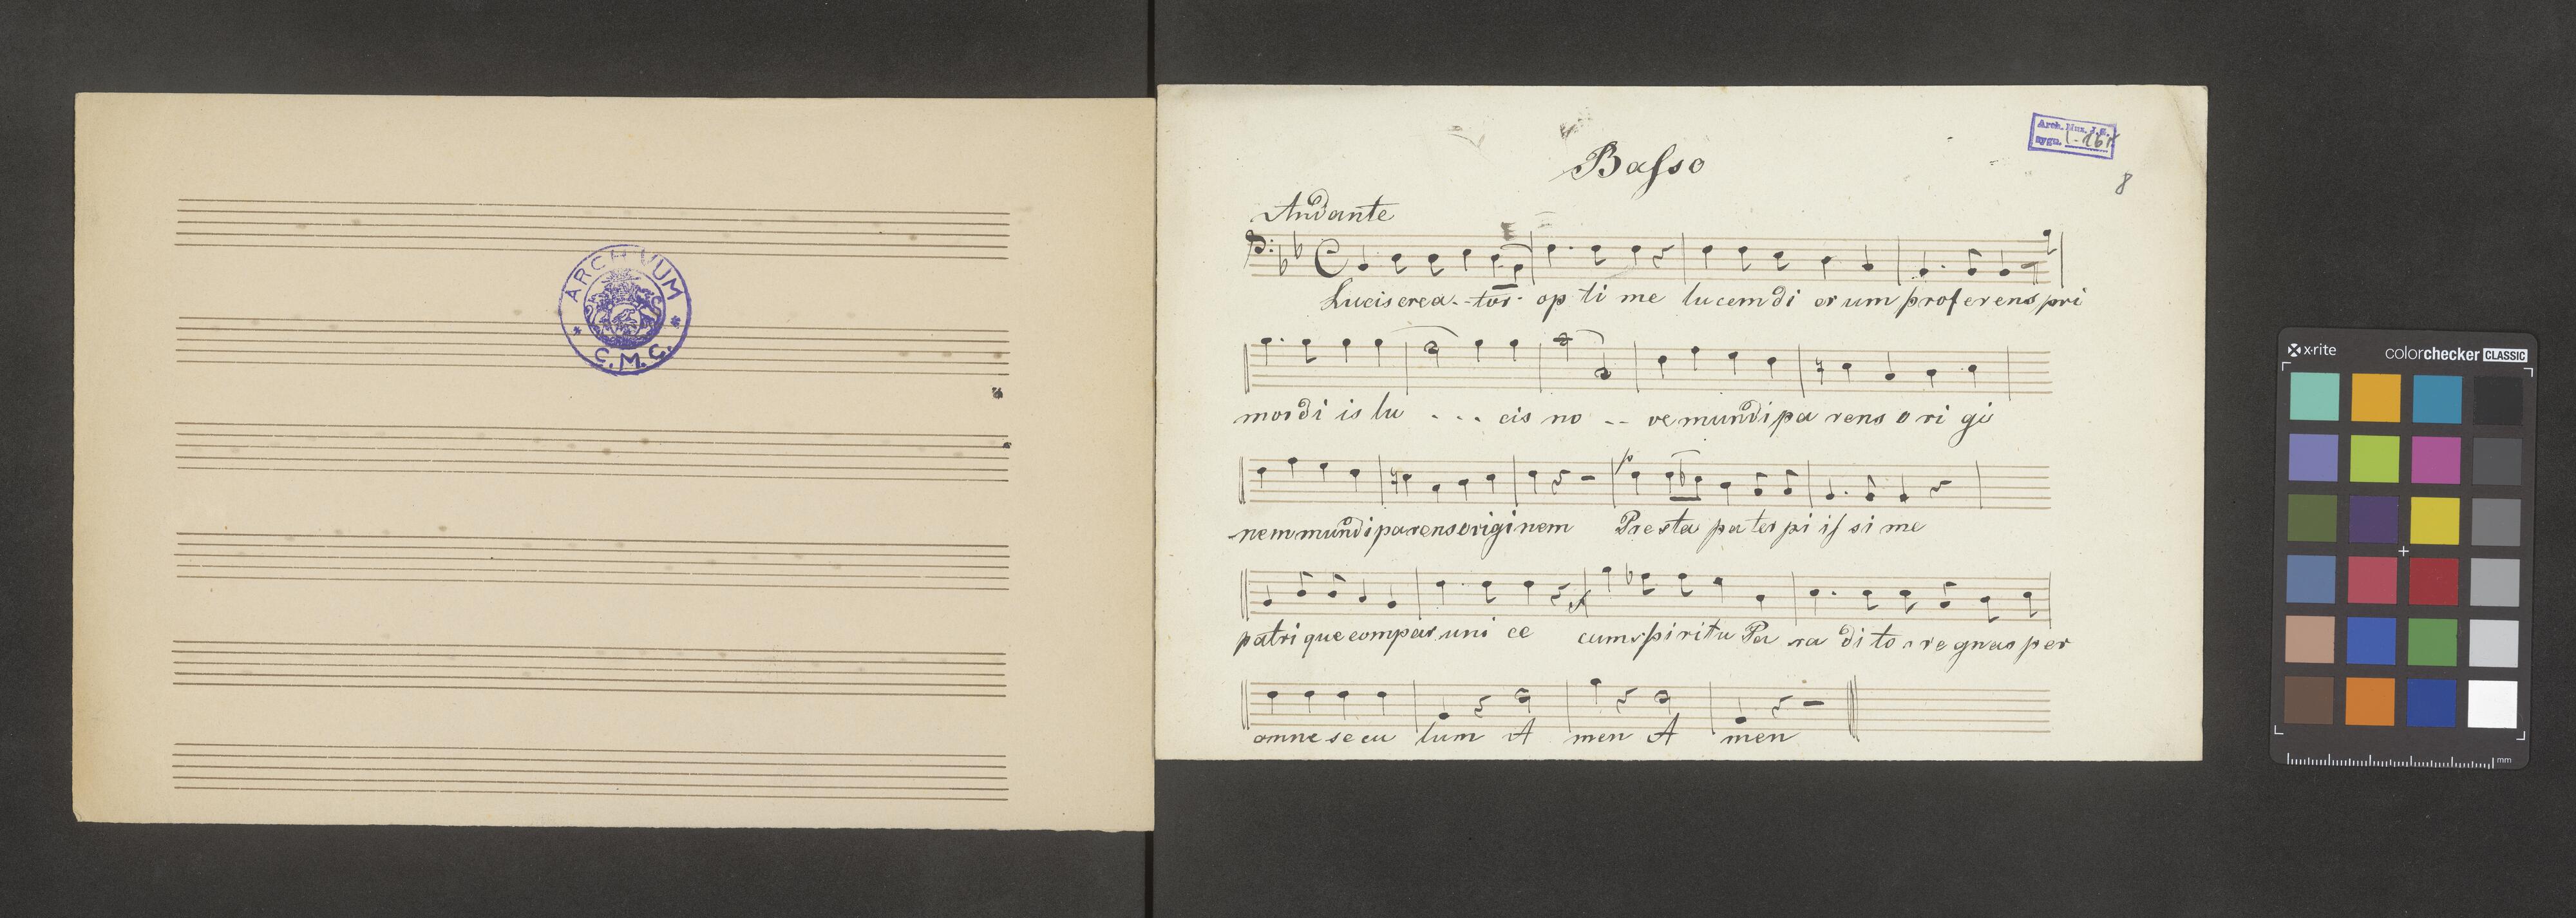 ARCHIVUM
* C.M.C. *
Arch. Mus. J. G.
sygn.
8
Basso
Andante
Lucis crea - - tor - op ti me lucem di er um proferens pri
mordi is lu - - - cis no - - ve mundi pa rens o ri gi
nem mundi parens originem Presta pater pi is si me
patri que compar uni ce cum spiritu Pa ra di to - re gnas per
omne se cu lum A men A men
x-rite colorchecker CLASSIC
mm